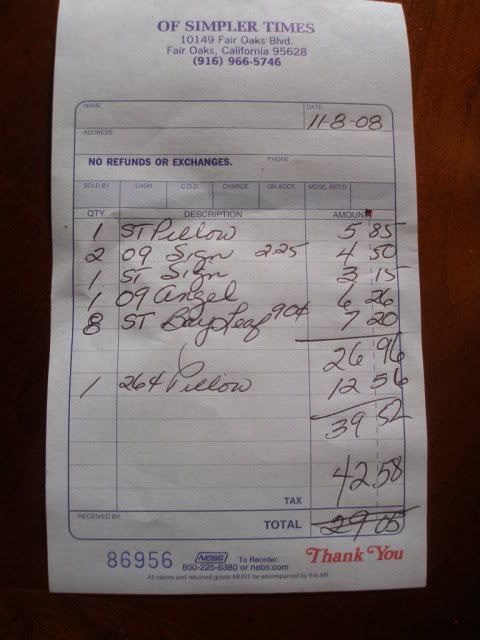 OF SIMPLER TIMES
10149 Fair Oaks Blvd.
Fair Oaks, California 95628
(916) 966-5746
NAME DATE
11-8-08
ADDRESS
NO REFUNDS OR EXCHANGES. PHONE
SOLD BY CASH C.O.D. CHARGE ON ACCT. MDSE. RET'D
QTY. DESCRIPTION AMOUNT
1 ST Pillow 5 85
2 09 Sign 2.25 4 50
1 ST Sign 3 15
1 09 Angel 6 26
8 ST Bay Leaf 90¢ 7 20
26 96
1 264 Pillow 12 56
39 52
42 58
TAX
RECEIVED BY TOTAL 29 05
86956 NEBS To Reorder: Thank You
800-225-6380 or nebs.com
All claims and returned goods MUST be accompanied by this bill